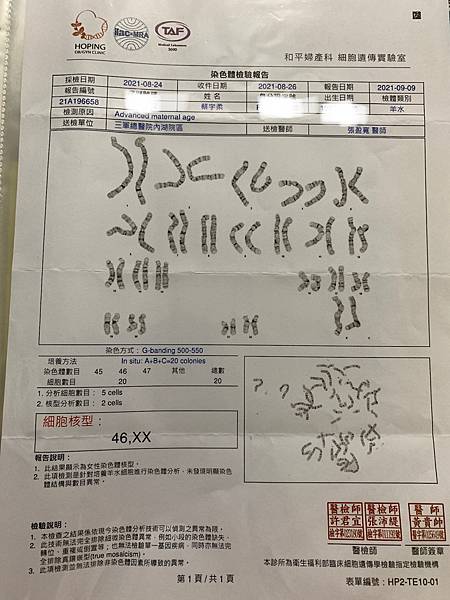 HOPING
OB/GYN CLINIC
ilac-MRA
TAF
Medical Laboratory
3080
和平婦產科 細胞遺傳實驗室
染色體檢驗報告
採檢日期 2021-08-24 收件日期 2021-08-26 報告日期 2021-09-09
報告編號 姓名 出生日期 檢體類別
21A196658 蔡宇柔 羊水
檢測原因 Advanced maternal age
送檢單位 三軍總醫院內湖院區 送檢醫師 張盈寬 醫師
染色方式: G-banding 500-550
培養方法 In situ: A+B+C=20 colonies
染色體數目 45 46 47 其他 總數
細胞數目 20 20
1. 分析細胞數目: 5 cells
2. 核型分析數目: 2 cells
細胞核型:
46,XX
報告說明:
1. 此結果顯示為女性染色體核型。
2. 此項檢測是針對培養羊水細胞進行染色體分析，未發現明顯染色
體結構與數目異常。
檢驗說明:
1. 本檢查之結果係依現今染色體分析技術可以偵測之異常為限。
2. 此技術無法完全排除細微染色體異常，例如小段的染色體缺失、
轉位、重複或倒置等；也無法檢驗單一基因疾病，同時亦無法完
全排除真鑲嵌型(true mosaicism)。
3. 此項檢測並無法排除非染色體因素所導致的異常。
醫檢師
許君宜
醫檢師
張沛緹
醫師
黃貴帥
醫檢師 醫師簽章
本診所為衛生福利部臨床細胞遺傳學檢驗指定檢驗機構
第1頁/共1頁
表單編號: HP2-TE10-01